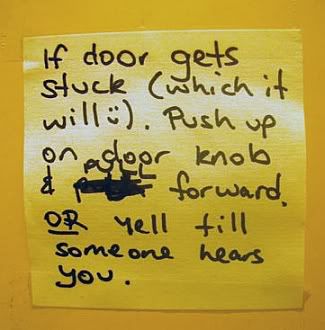 If door gets
stuck (which it
will ü). Push up
on door knob
& pull forward.
OR yell till
someone hears
you.